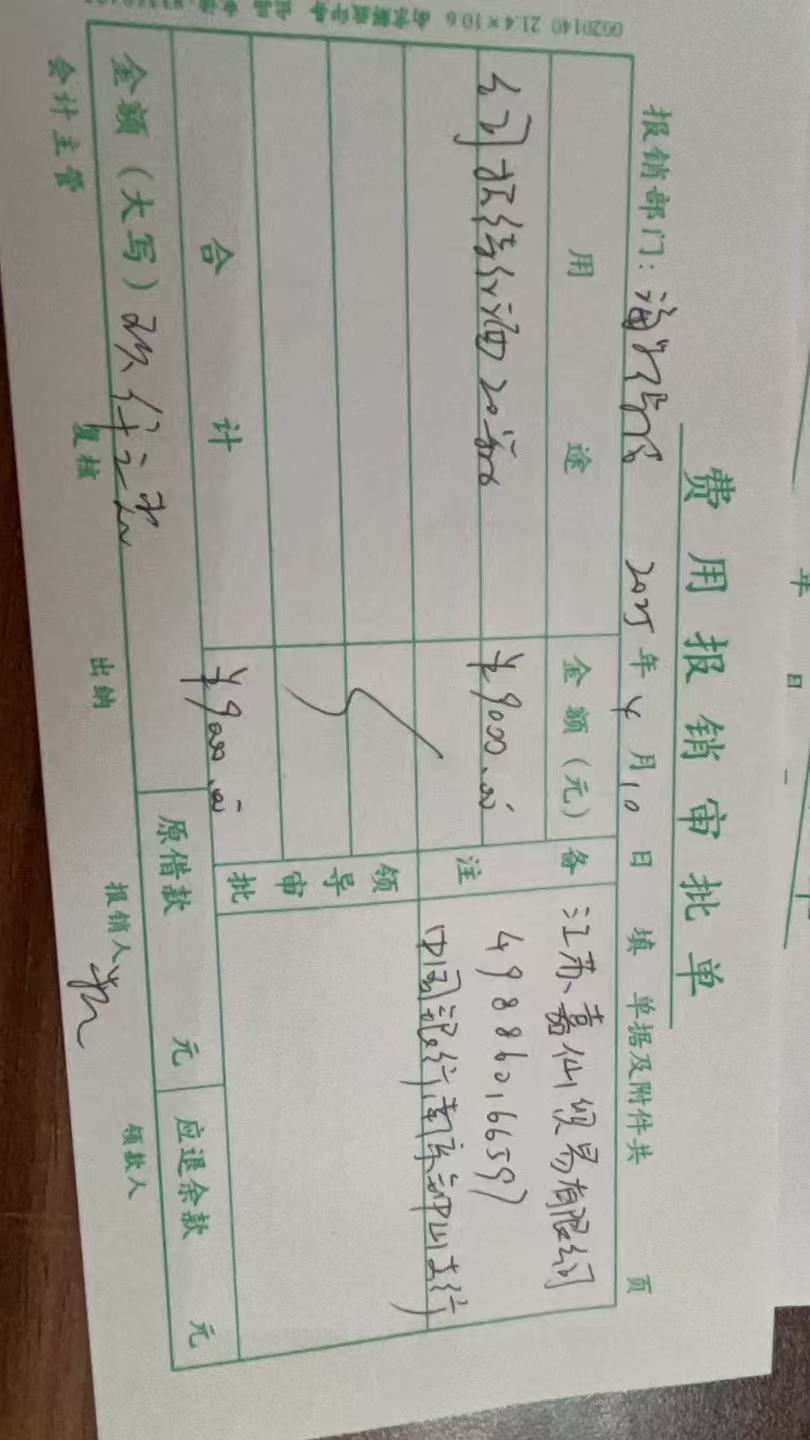 费用报销审批单
报销部门：
2025年4月10日 填 单据及附件共 页
用途 金额（元） 备注
江苏嘉仙贸易有限公司
498860166597
中国银行南京 中山支行
公司招待行酒20箱 ¥9000.00
领导审批
合计 ¥9000.00
金额（大写）玖仟元整 原借款 元 应退余款 元
会计主管 复核 出纳 报销人 领款人
0020140 21.4×10.6
年 日